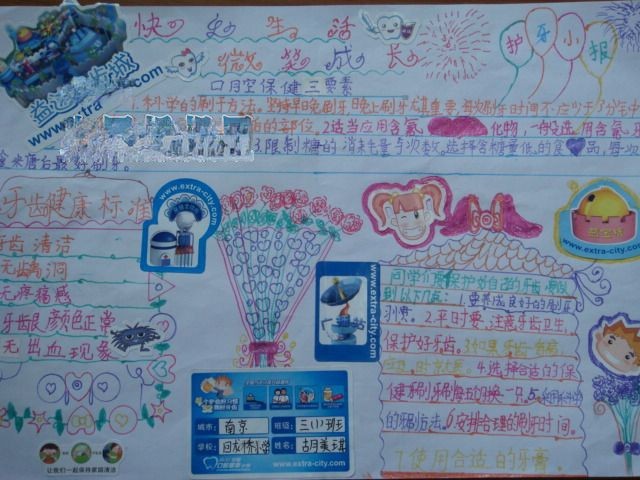 快乐生活
微笑成长
护牙小报
益达
www.extra-city.com
口腔保健三要素
1.科学的刷牙方法。坚持早晚刷牙晚上刷牙尤其重要.每次刷牙时间不应少于3分钟
的部位。2适当应用含氟、化物,一般选用含氟
3.限制糖的消耗量与次数。选择含糖量低的食品,每次
后最好刷牙。
牙齿健康标准
牙齿清洁
无龋洞
无疼痛感
牙龈颜色正常
无出血现象
让我们一起保持家园清洁
www.extra-city.com
www.extra-city.com
www.extra-city.com
城市:南京
班级:三(1)班
学校:回龙桥小学
姓名:胡美琪
www.extra-city.com
同学们要保护好自己的牙齿
到以下几点:1.要养成良好的刷牙
习惯。2.平时要注意牙齿卫生,
保护好牙齿。3.如果牙齿
4.选择合适的保
健牙刷
的刷牙方法。6.安排合理的刷牙时间。
7.使用合适的牙膏。